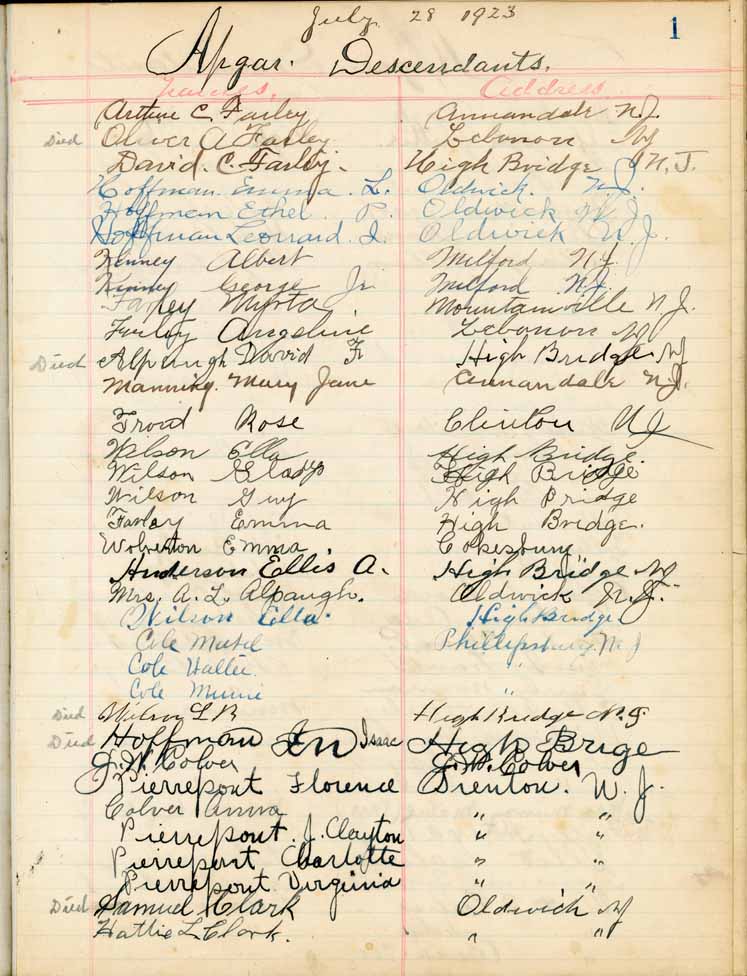 July 28 1923
1
Apgar. Descendants.
Names, Address
Arthur C. Farley Annandale N.J.
Died Oliver A Farley Lebanon NJ
David. C. Farley. High Bridge N.J.
Hoffman Emma L. Oldwick. N.J.
Hoffman Ethel P. Oldwick N J
Hoffman Leonard I. Oldwick N.J.
Kinney Albert Milford N.J.
Kinney George Jr Milford N.J.
Farley Myrta Mountainville N.J.
Farley Angeline Lebanon NJ
Died Alpaugh David Fr High Bridge NJ
Manning. Mary Jane Annandale N.J.
Trout Rose Clinton NJ
Wilson Ella High Bridge.
Wilson Gladys High Bridge
Wilson Guy High Bridge
Farley Emma High Bridge.
Wolverton Emma Cokesbury
Anderson Ellis A. High Bridge NJ
Mrs. A. L. Alpaugh. Oldwick N.J.
Wilson Ella. High Bridge
Cole Phillipsburg N J
Cole Hattie "
Cole Minnie "
Died Wilson L B High Bridge N.J.
Died Hoffman Isaac High Brige
J. W. Colver J. W. Colver
Pierrepont Florence Trenton. N. J.
Colver Anna " "
Pierrepont J. Clayton " "
Pierrepont Charlotte " "
Pierrepont Virginia " "
Died Samuel Clark Oldwick NJ
Hattie L Clark. " "